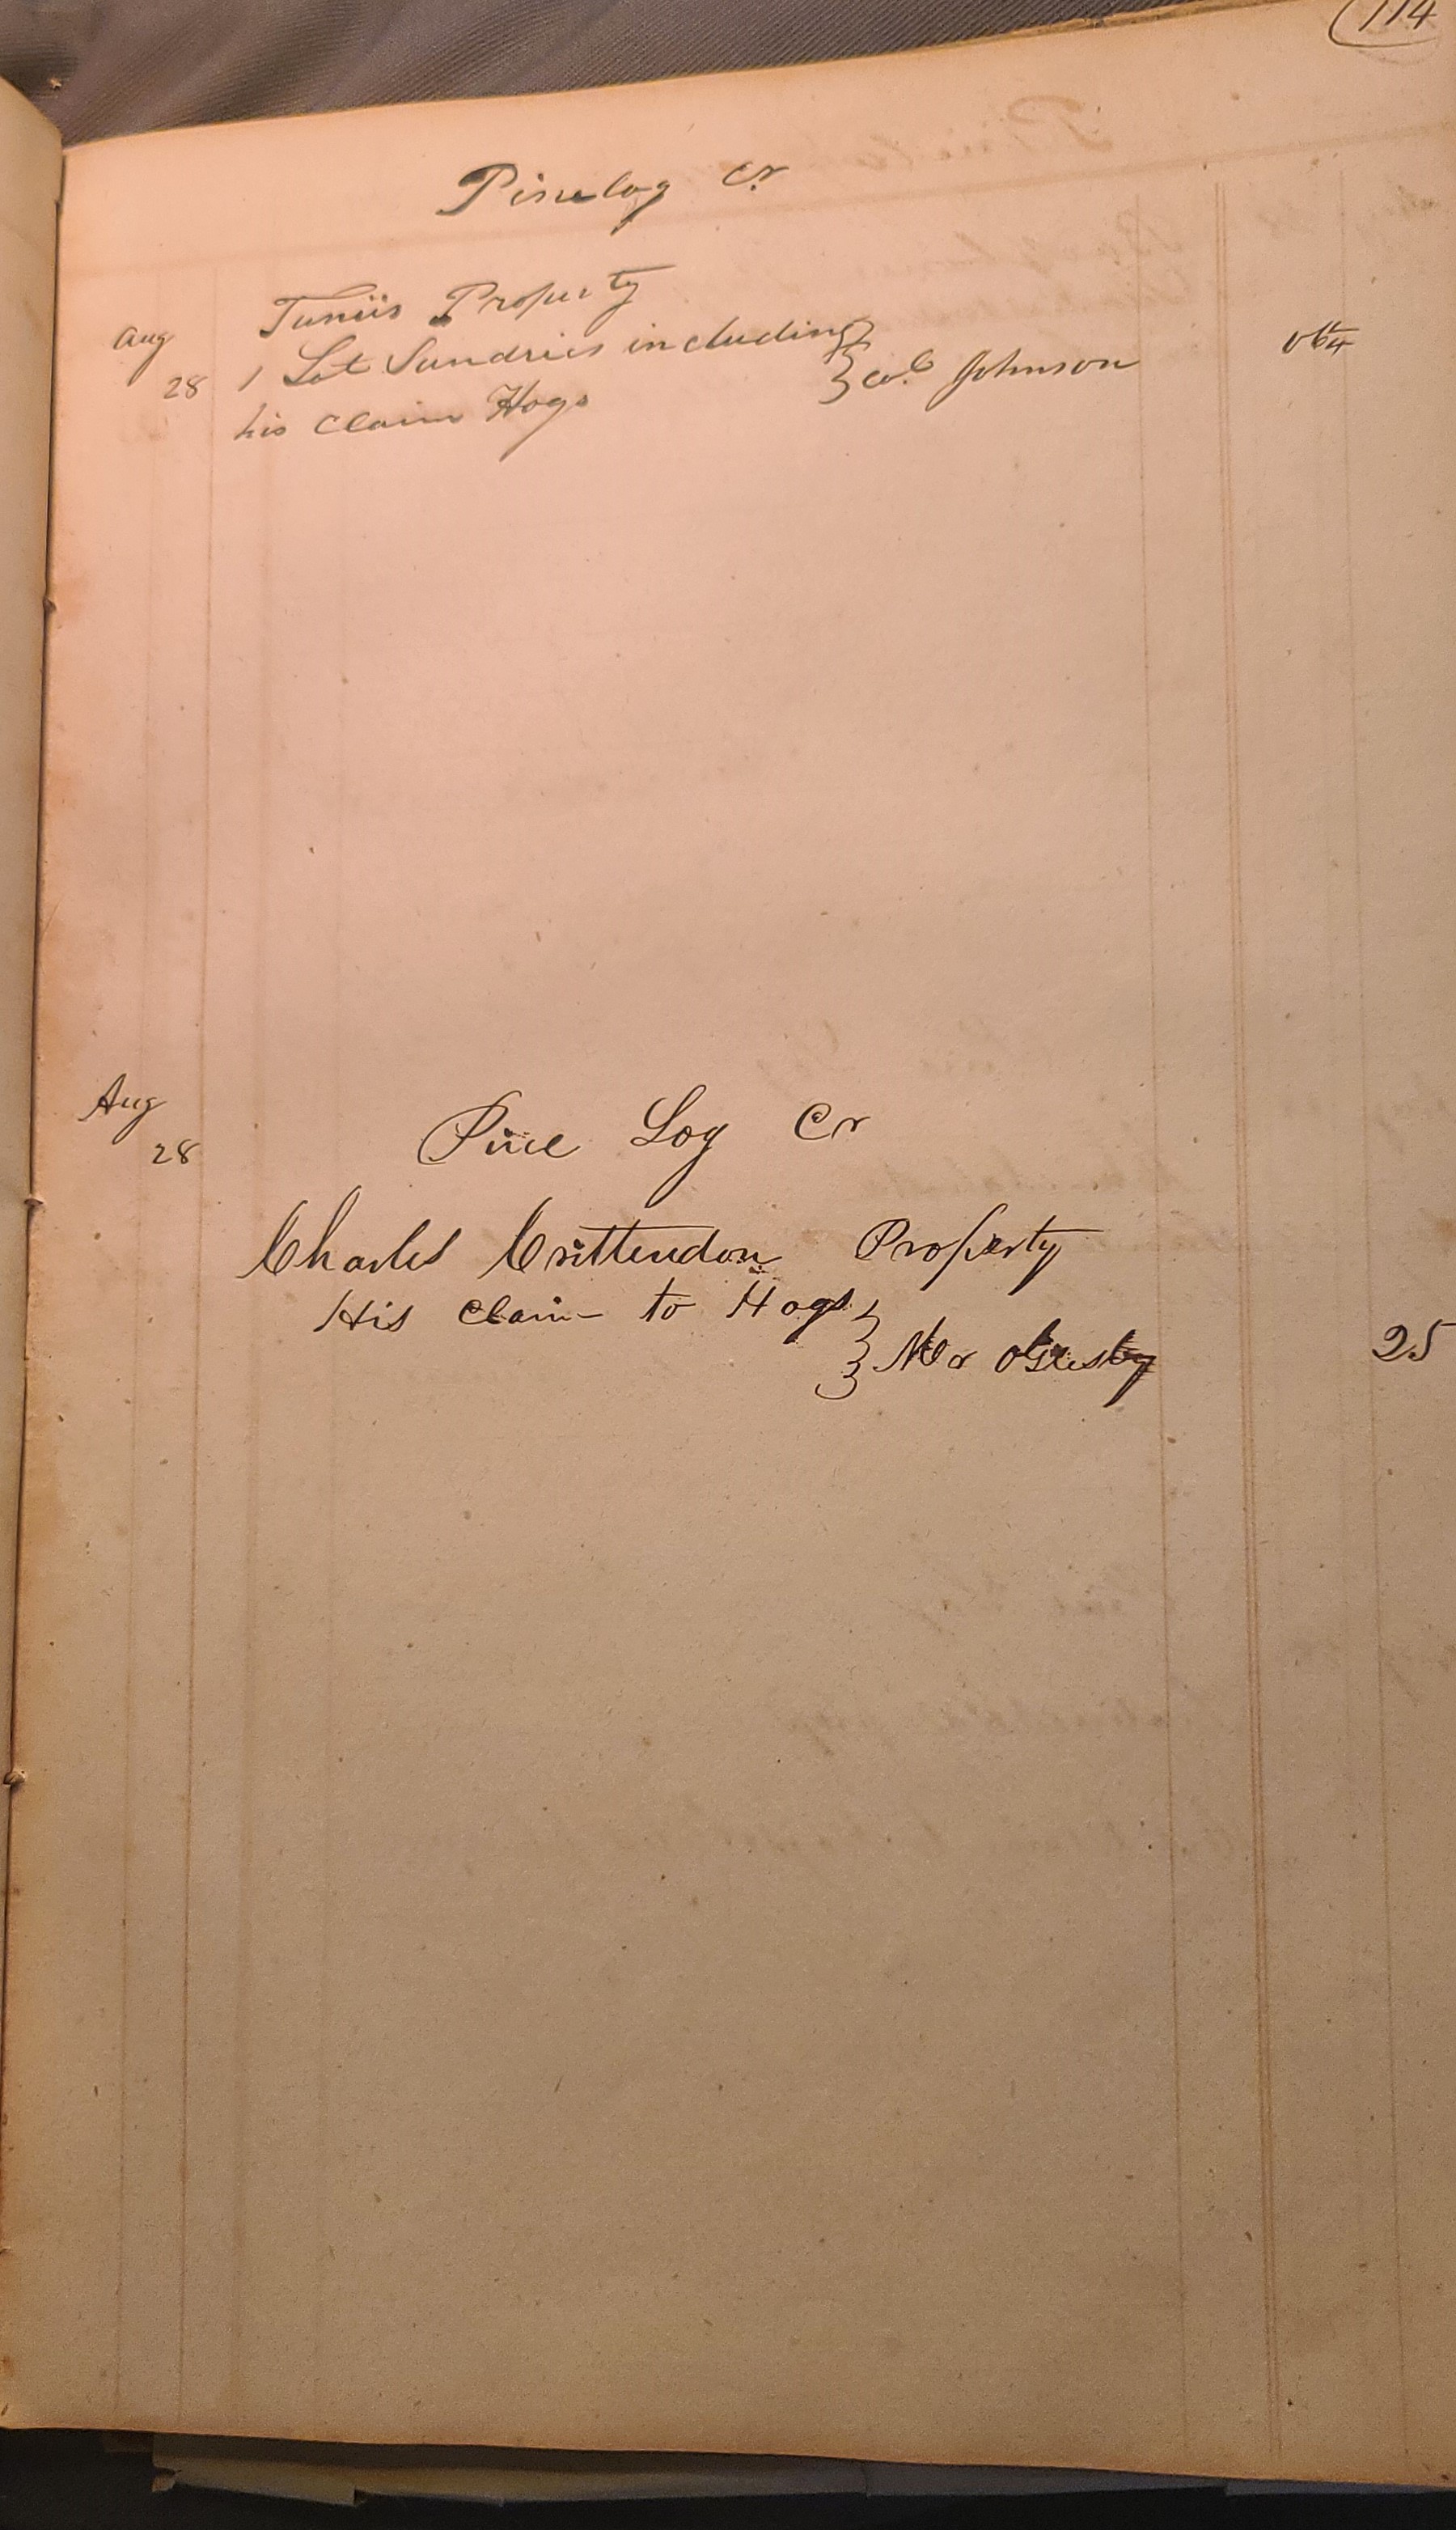 114
Pinelog Cr
Aug
Property
28 1 Lot Sundries including
Johnson
his Claim Hogs
Aug
28
Pine Log Cr
Charles Crittendon Property
His Claim to Hogs
25